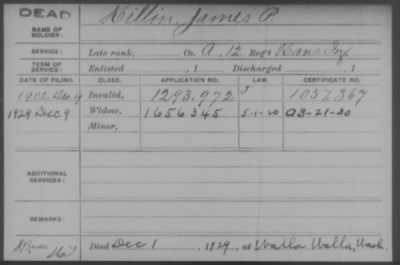 DEAD
Killin, James P.
NAME OF SOLDIER:
SERVICE: Late rank, Co. A, 12 Reg't Kans Inf
TERM OF SERVICE: Enlisted , 1 Discharged , 1
DATE OF FILING: CLASS. APPLICATION NO. LAW. CERTIFICATE NO.
1902 Dec. 19 Invalid, 1293.972 1057367
1929 Dec 9 Widow, 1656345 5-1-20 A3-21-30
Minor,
ADDITIONAL SERVICES:
REMARKS:
Died Dec 1, 1929, at Walla Walla, Wash.